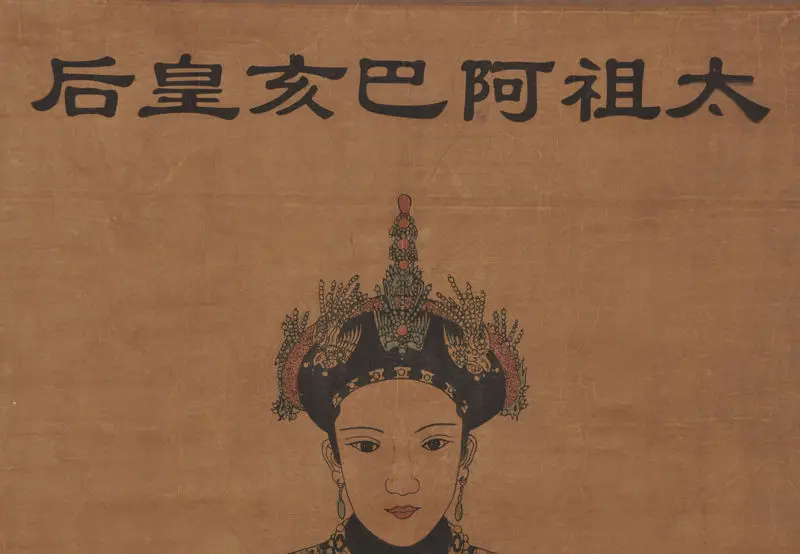 太祖阿巴亥皇后